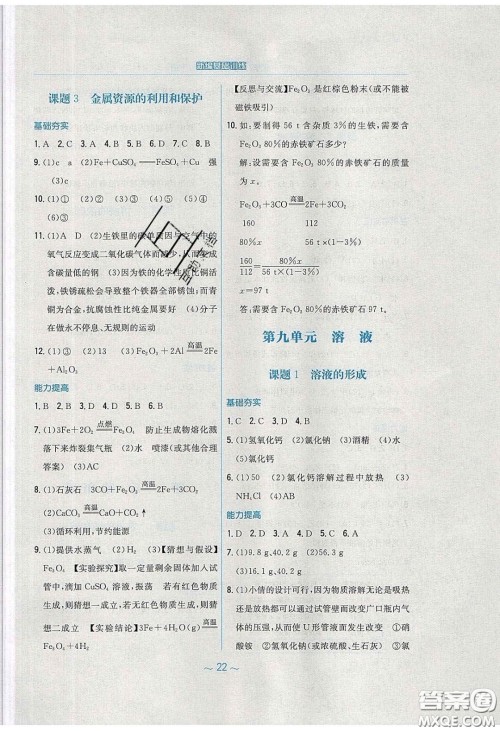 新编基础训练
课题 3 金属资源的利用和保护
基础夯实
1. A 2. C 3. D 4. B 5. A 6. C 7. C 8. B
9. (1)c a (2)Fe+CuSO₄═FeSO₄+Cu 强
(3)c
10. (1)③ (2)① (3)② (4)⑤ (5)④
(6)③
11. (1)A D (2)生铁里的碳单质因与空气中的
氧气反应变成二氧化碳气体而减少,从而变成
含碳量低的钢 (3)因为铁的化学性质比铜活
泼,铁锈疏松会导致整个铁器全部锈蚀;而青
铜为合金,抗腐蚀性比纯金属要好 (4)分子
在做永不停息、无规则的运动
12. (1)①③ (2)13 (3)Fe₂O₃+2Al高温2Fe
+Al₂O₃
能力提高
1. B 2. B 3. D 4. D 5. A 6. D
7. (1)3Fe+2O₂点燃Fe₃O₄ 防止生成物熔化溅
落下来炸裂集气瓶 (2)水 喷漆(或其他合理
答案) (3)AC
8. (1)石灰石 3CO+Fe₂O₃高温2Fe+3CO₂
(2)CaCO₃高温CaO+CO₂↑
(3)循环利用,节约能源
9. (1)提供水蒸气 (2)H₂ (3)【猜想与假设】
Fe₃O₄ 【实验探究】取一定量剩余固体加入试
管中,滴加CuSO₄溶液,振荡 若有红色物质
生成,则猜想一成立,若无红色物质生成,则猜
想二成立 【实验结论】3Fe+4H₂O(g)高温
Fe₃O₄+4H₂
【反思与交流】Fe₂O₃是红棕色粉末(或不能被
磁铁吸引)
10. 如:要制得 56 t 含杂质 3%的生铁,需要含
Fe₂O₃ 80%的赤铁矿石多少?
解:设需要含 Fe₂O₃ 80%的赤铁矿石的质量
为 x。
Fe₂O₃+3CO高温2Fe+3CO₂
160 112
80%x 56 t×(1-3%)
160/112=80%x/56 t×(1-3%)
x=97 t
答:需要含 Fe₂O₃ 80%的赤铁矿石 97 t。
第九单元 溶 液
课题 1 溶液的形成
基础夯实
1. C 2. C 3. D 4. B
5. (1)氢氧化钙 (2)氯化钠 (3)酒精 (4)水
(5)氯化钙
6. (1)50 (2)氯化钙溶解过程中放热 (3)
NH₄Cl (4)AB
能力提高
1. D 2. D 3. A 4. A 5. C 6. D
7. (1)9.8 g,40.2 g (2)11.1 g,40.2 g
(3)16.1,40.2 g
8. (1)小倩的设计可行,因为物质溶解无论是吸热
还是放热都可以通过试管壁而改变广口瓶内气
体的压强,从而使 U 形管液面发生改变 ①硝
酸铵 ②氢氧化钠(或浓硫酸、生石灰) ③氯
~ 22 ~
答案圈
MXQE.COM